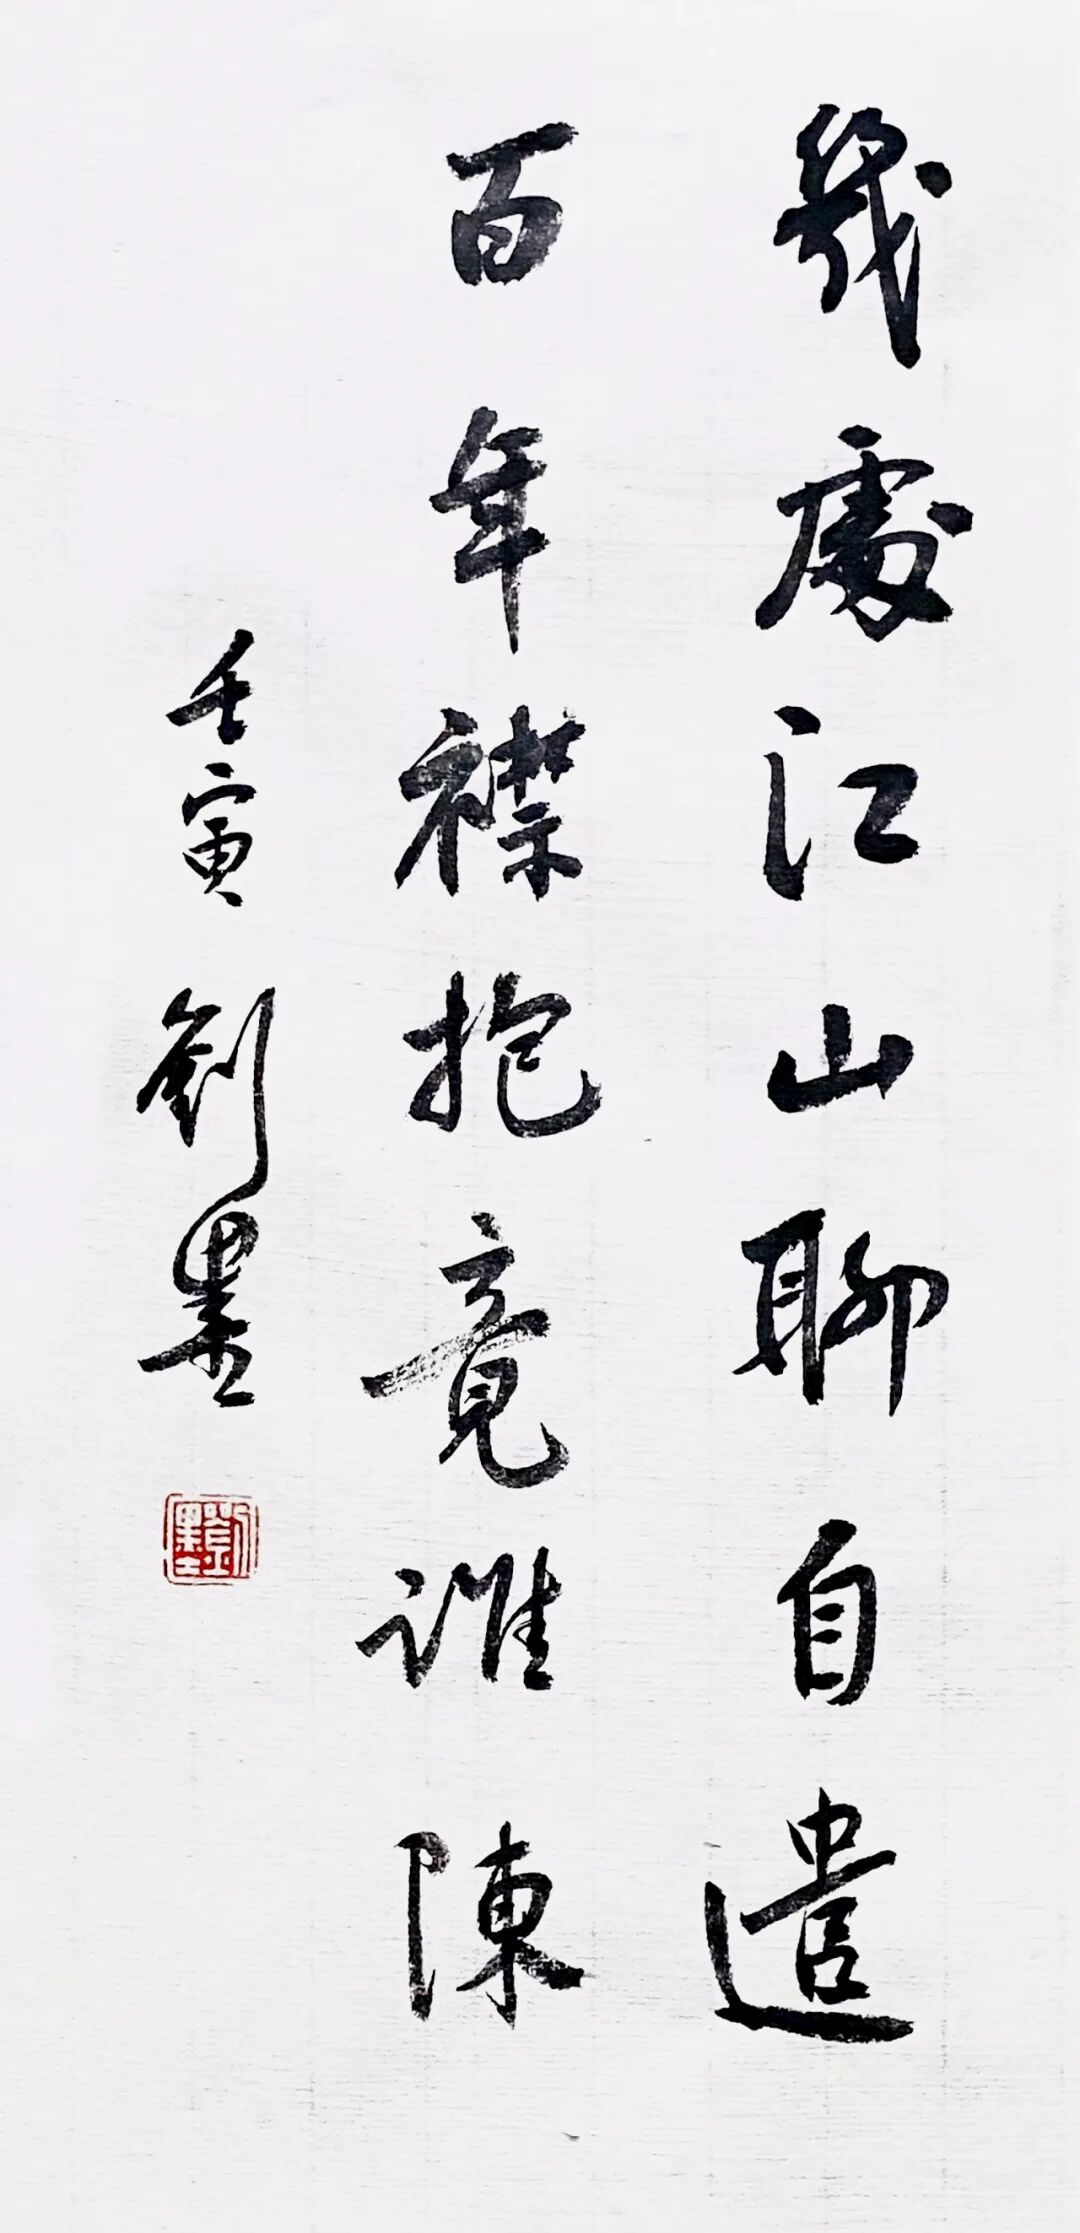 幾處江山聊自遣
百年襟抱竟誰陳
壬寅 劉墨
劉墨